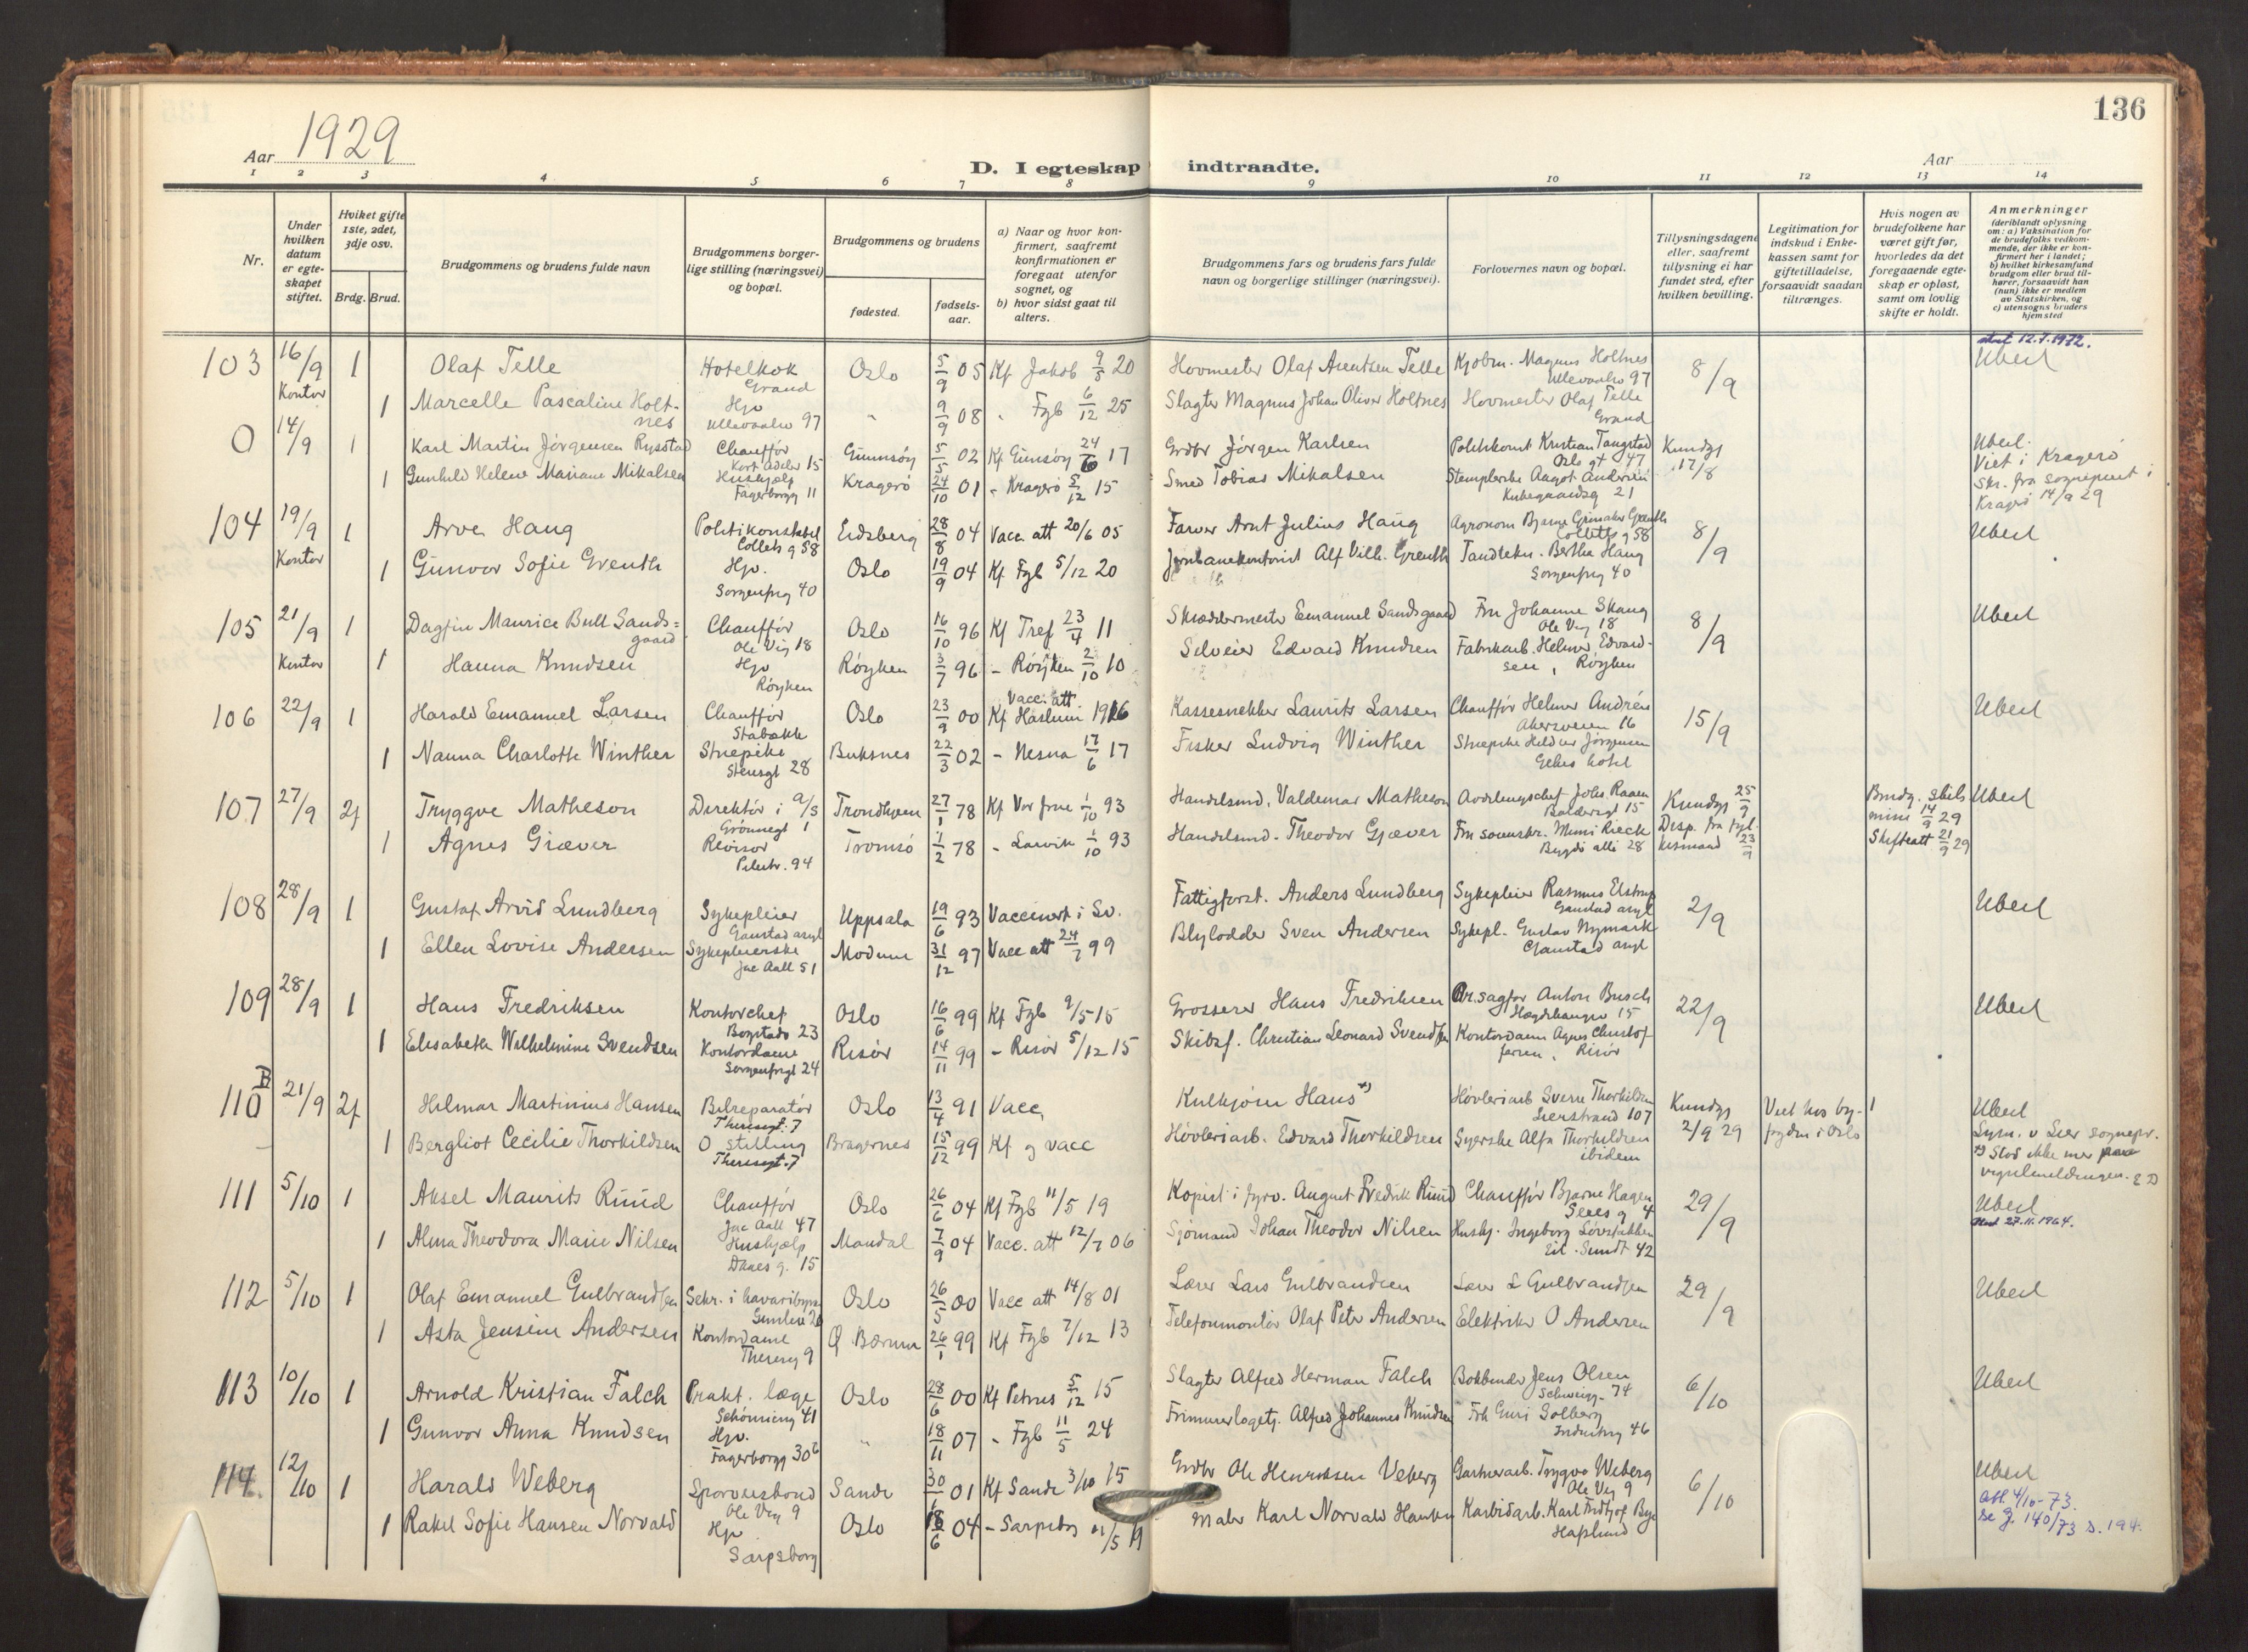 136
Aar 1929
D. I egteskap indtraadte.
Aar
1 2 3 4 5 6 7 8 9 10 11 12 13 14
Nr.
Under hvilken datum er egteskapet stiftet.
Hviket gifte 1ste, 2det, 3dje osv.
Brdg. Brud.
Brudgommens og brudens fulde navn
Brudgommens borgerlige stilling (næringsvei) og bopæl.
Brudgommens og brudens
fødested.
fødselsaar.
a) Naar og hvor konfirmert, saafremt konfirmationen er foregaat utenfor sognet, og
b) hvor sidst gaat til alters.
Brudgommens fars og brudens fars fulde navn og borgerlige stillinger (næringsvei).
Forlovernes navn og bopæl.
Tillysningsdagene eller, saafremt tillysning ei har fundet sted, efter hvilken bevilling.
Legitimation for indskud i Enkekassen samt for giftetilladelse, forsaavidt saadan tiltrænges.
Hvis nogen av brudefolkene har været gift før, hvorledes da det foregaaende egteskap er opløst, samt om lovlig skifte er holdt.
Anmerkninger (deriblandt oplysning om: a) Vaksination for de brudefolks vedkommende, der ikke er konfirmert her i landet; b) hvilket kirkesamfund brudgom eller brud tilhører, forsaavidt han (hun) ikke er medlem av Statskirken, og c) utensogns bruders hjemsted
103 16/9 1 Olaf Telle Hotelkok Grand Oslo 5/9 05 Kf Jakob 9/5 20 Hovmester Olaf Arentzen Telle Kjøbm. Magnus Holtnes Ullevaalsv 97 8/9 12.7.1972. Uberl
Kontor 1 Marcelle Pascaline Holtnes Hjv Ullevaalsv 97 " 9/9 08 " Fgb 6/12 25 Slagter Magnus Johan Oliver Holtnes Hovmester Olaf Telle Grand
0 14/9 1 Karl Martin Jørgensen Rysstad Chauffør Kort Adeler 15 Gumnsøy 5/5 02 Kf Gimsøy 24/6 17 Grdbr Jørgen Karlsen Politikonst Kristian Tangstad Oslo gt 47 Kundgj 17/8 Uberl. Viet i Kragerø Skr. fra sogneprest i Kragerø 14/9 29
1 Gunhild Helene Mariane Mikalsen Hushjælp Fagerborgg 11 Kragerø 24/10 01 - Kragerø 5/12 15 Smed Tobias Mikalsen Stemplerske Aagot Andersen 21
104 19/9 1 Arve Haug Politikonstabel Colletts g 58 Eidsberg 28/8 04 Vacc. att 20/6 05 Farver Arnt Julius Haug Agronom Bjarne Grenth Colletts g 58 8/9 Uberl
Kontor 1 Gunvor Sofie Grenth Hjv. Sorgenfrig 40 Oslo 19/9 04 Kf Fgb 5/12 20 Jernbanekontorist Alf Vilh. Grenth Tandtekn. Bertha Haug Sorgenfrig 40
105 21/9 1 Dagfin Maurice Bull Sandsgaard Chauffør Ole Vig 18 Oslo 16/10 96 Kf Tref 23/4 11 Skræddermester Emanuel Sandsgaard Fru Johanne Skaug Ole Vig 18 8/9 Uberl
Kontor 1 Hanna Knudsen Hjv Røyken Røyken 3/7 96 - Røyken 2/10 10 Selveier Edvard Knudsen Fabrikarb. Helmer Edvardsen, Røyken
106 22/9 1 Harald Emanuel Larsen Chauffør Stabækk Oslo 23/9 00 Vacc. att. Kf Haslum 1916 Kassesnekker Laurits Larsen Chauffør Helmer Andrén Akersveien 16 15/9 Uberl
1 Nanna Charlotte Winther Stuepike Stensgt 28 Buksnes 22/3 02 - Nesna 17/6 17 Fisker Ludvig Winther Stuepike Jørgensen hotel
107 27/9 2f Tryggve Matheson Direktør i A/S Grønnegt 1 Trondhjem 27/1 78 Kf Vor frue 1/10 93 Handelsmd. Valdemar Matheson Avdelingschef Johs. Raaen Baldersgt 15 Kundgj 25/9 Brudg. skilsmisse 14/9 29 Uberl
1 Agnes Giæver Revisor Pilestr. 94 Tromsø 1/2 78 - Larvik 1/10 93 Handelsmd. Theodor Gjæver Fru Mimi Rieck Bygdø alle 28 Disp. fra fylkesmand 23/9 Skifteatt 21/9 29
108 28/9 1 Gustaf Arvid Lundberg Sykepleier Gaustad asyl Uppsala 19/6 93 Vaccinert i Sv. Fattigforst. Anders Lundberg Sykepleier Rasmus Elstrup Gaustad asyl 2/9 Uberl
1 Ellen Lovise Andersen Sykepleierske Jac Aall 51 Modum 31/12 97 Vacc att 24/7 99 Blylodder Sven Andersen Sykepl. Gustav Nymark Gaustad asyl
109 28/9 1 Hans Fredriksen Kontorchef Bogstadv 23 Oslo 16/6 99 Kf Fgb 9/5 15 Grosserer Hans Fredriksen Or.sagfør Anton Busch Hægdehaugsv 15 22/9 Uberl
1 Elisabeth Wilhelmine Svendsen Kontordame Sorgenfrigt 24 Risør 14/11 99 - Risør 5/12 15 Skibsf. Christian Leonard Svendsen Kontordame Agnes Christoffersen, Risør
110 B 21/9 2f Hilmar Martinius Hansen Bilreparatør Theresgt. 7 Oslo 13/4 91 Vacc, Kulkjører Hans *) Høvleriarb Sverre Thorkildsen Lierstrand 107 Kundgj 2/9 29 Viet hos byfogden i Oslo 1 Uberl Lysn. v Lier sognepr. *) Stod ikke mer paa vigselmeldingen. E D
1 Bergliot Cecilie Thorkildsen O stilling Theresgt. 7 Bragernes 15/12 99 Kf og vacc Høvleriarb. Edvard Thorkildsen Syerske Alfa Thorkildsen ibidem
111 5/10 1 Aksel Maurits Ruud Chauffør Jac Aall 47 Oslo 26/6 04 Kf Fgb 11/5 19 Kopist i jgrv. August Fredrik Ruud Chauffør Bjarne Hagen Seies g 4 29/9 Uberl 27.11.1964.
1 Alma Theodora Marie Nilsen Hushjælp Daaes g. 15 Mandal 7/9 04 Vacc. att 12/7 06 Sjømand Johan Theodor Nilsen Hushj. Ingeborg Løvstakken Eil. Sundt 42
112 5/10 1 Olaf Emanuel Gulbrandsen Sekr. i havaribyraa Oslo 26/5 00 Vacc att 14/8 01 Lærer Lars Gulbrandsen Lærer L Gulbrandsen 29/9 Uberl
1 Asta Jensine Andersen Kontordame Thereseg 9 Ø Bærum 26/1 99 Kf Fgb 7/12 13 Telefonmontør Olaf Peter Andersen Elektriker O Andersen
113 10/10 1 Arnold Kristian Falch Prakt. læge Schønning 41 Oslo 28/6 00 Kf Petrus 5/12 15 Slagter Alfred Herman Falch Bokbinder Jens Olsen Schweigg. 74 6/10 Uberl
1 Gunvor Anna Knudsen Hjv. Fagerborgg 30b " 18/11 07 - Fgb 11/5 24 Frimurerlogetj. Alfred Johannes Knudsen Frk Guri Solberg Industrig 46
114. 12/10 1 Harald Weberg Sporveisbond Ole Vig 9 Sande 30/1 01 Kf Sande 3/10 15 Grdbr Ole Henriksen Veberg Gartnerarb. Trygve Weberg Ole Vig 9 6/10 Uberl Att. 4/10-73. se J. 140/73 s. 194.
1 Rakel Sofie Hansen Norvald Hjv Sarpsborg Oslo 18/6 04 - Sarpsbg 11/5 19 Maler Karl Norvald Hansen Karbidarb. Karl Fridtjof Bye Hafslund